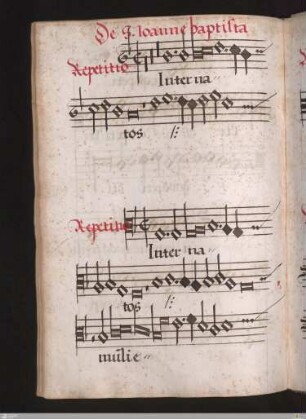 De S. Ioanne baptista
Repetitio
Inter na
tos /:
Repetitio
Inter na
tos /:
mulie